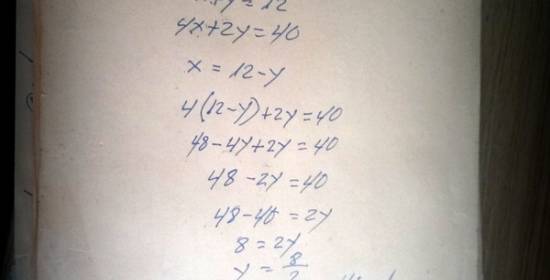 y = 12
4x+2y=40
x = 12-y
4(12-y)+2y=40
48-4y+2y=40
48-2y=40
48-40 = 2y
8 = 2y
y = 8/2